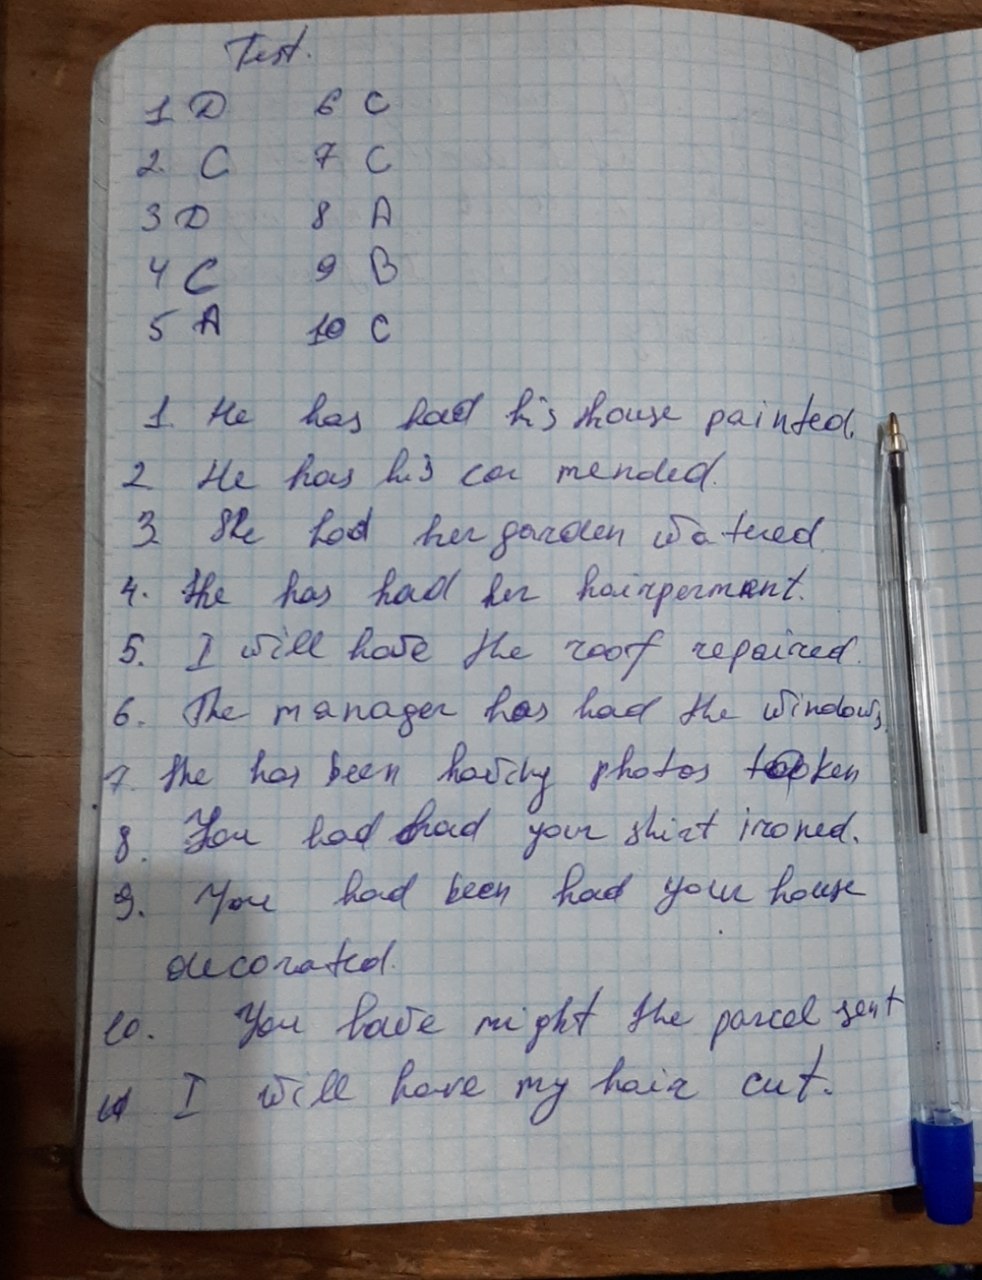 Test.
1 D 6 C
2. C 7 C
3 D 8 A
4 C 9 B
5 A 10 C
1. He has had his house painted.
2. He has his car mended.
3. She had her garden watered.
4. She has had her hair
5. I will have the roof repaired.
6. The manager has had the windows
7. She has been having photos taken
8. You had had your shirt ironed.
9. You had been had your house
decorated.
10. You have might the parcel sent
11 I will have my hair cut.